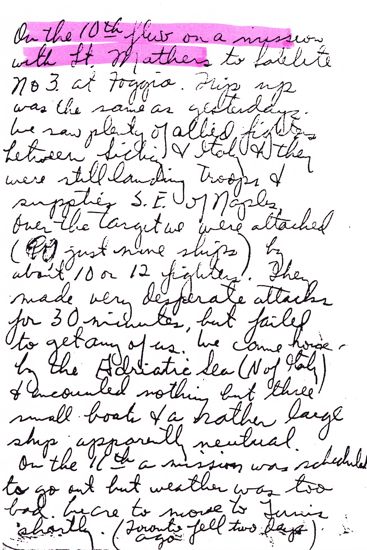 On the 10th flew on a mission
with Lt. Mathers to Satelite
No 3 at Foggia. Trip up
was the same as yesterdays.
We saw plenty of allied fighters
between Sicily & Italy & they
were still landing troops &
supplies S.E. of Naples.
Over the target we were attacked
( just nine ships) by
about 10 or 12 fighters. They
made very desperate attacks
for 30 minutes, but failed
to get any of us. We came home
by the Adriatic Sea (N of Italy)
& encounted nothing but three
small boats & a rather large
ship apparently neutual.
On the 11th a mission was scheduled
to go out but weather was too
bad. We are to move to Tunis
shortly. (Toronto fell two days
ago).